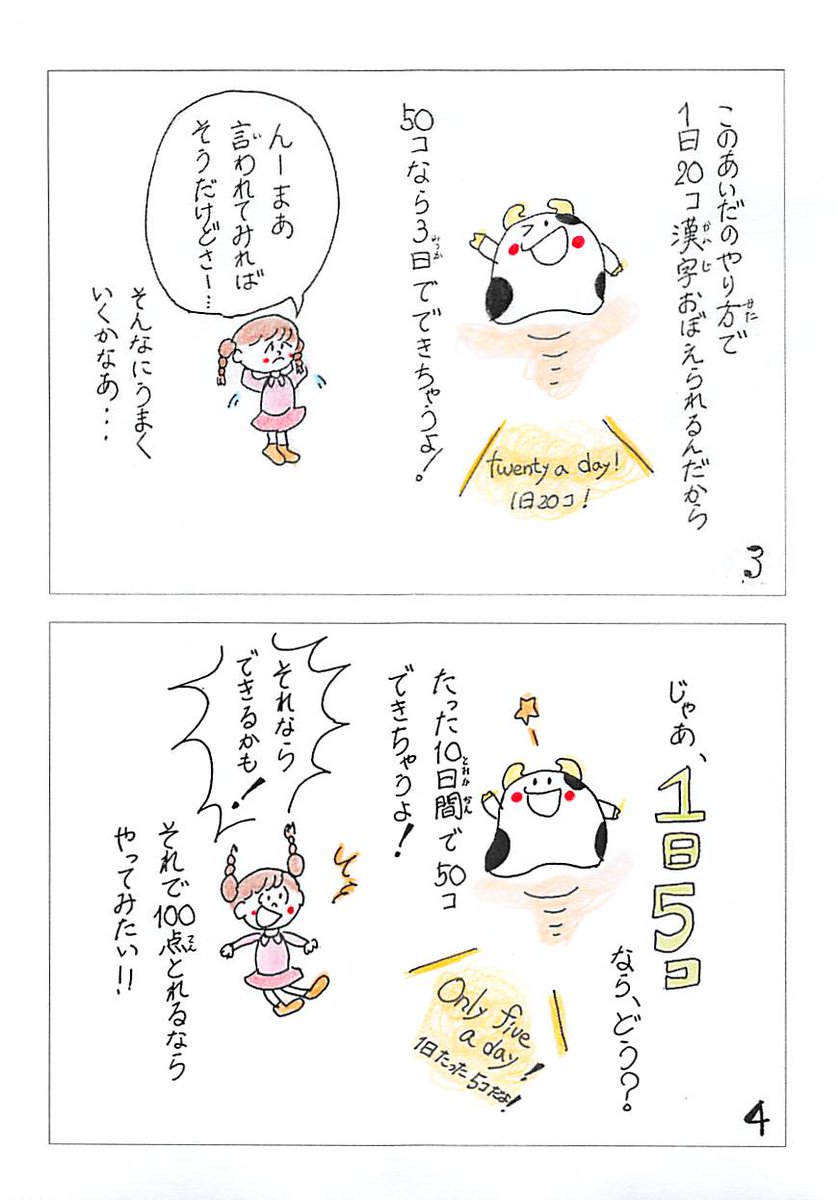 このあいだのやり方で
1日20コ漢字おぼえられるんだから
50コなら3日でできちゃうよ!
twenty a day!
1日20コ!
んーまあ
言われてみれば
そうだけどさー…
そんなにうまく
いくかなあ・・・
3
じゃあ、
1日5コ
なら、どう?
たった10日間で50コ
できちゃうよ!
Only five
a day!
1日たった5コだよ!
それなら
できるかも!
それで100点とれるなら
やってみたい!!
4